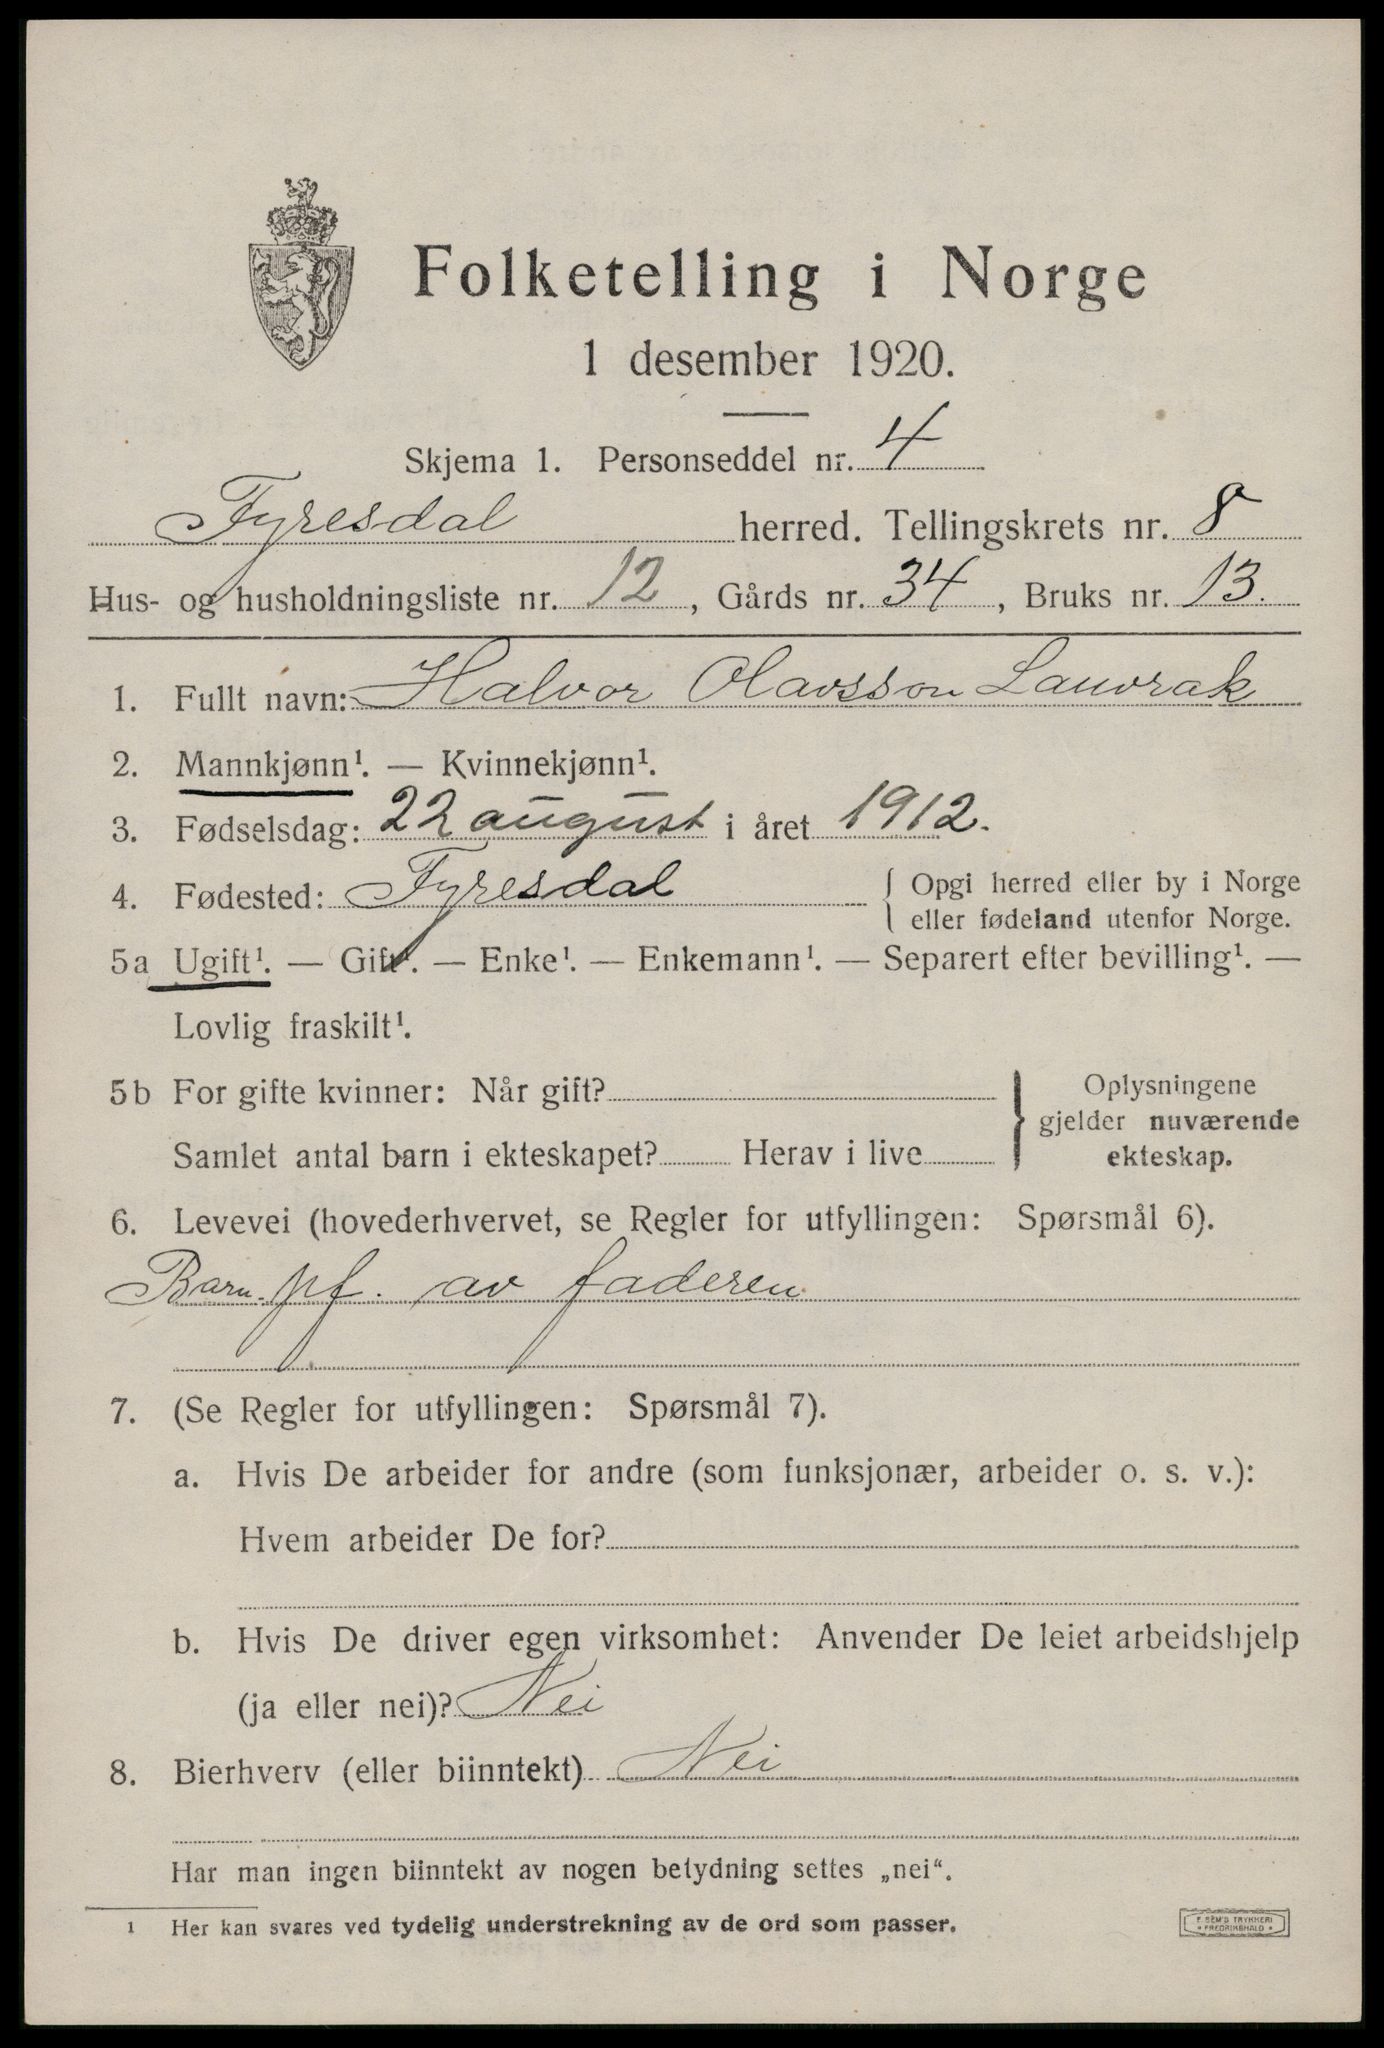 Folketelling i Norge
1 desember 1920.
Skjema 1. Personseddel nr. 4
Fyresdal herred. Tellingskrets nr. 8
Hus- og husholdningsliste nr. 12, Gårds nr. 34, Bruks nr. 13.
1. Fullt navn: Halvor Olavsson Lauvrak
2. Mannkjønn¹. — Kvinnekjønn¹.
3. Fødselsdag: 22 august i året 1912.
4. Fødested: Fyresdal { Opgi herred eller by i Norge
eller fødeland utenfor Norge.
5a Ugift¹. — Gift¹. — Enke¹. — Enkemann¹. — Separert efter bevilling¹. —
Lovlig fraskilt¹.
5b For gifte kvinner: Når gift? } Oplysningene
gjelder nuværende
Samlet antal barn i ekteskapet? Herav i live ekteskap.
6. Levevei (hovederhvervet, se Regler for utfyllingen: Spørsmål 6).
Barn. pf. av faderen
7. (Se Regler for utfyllingen: Spørsmål 7).
a. Hvis De arbeider for andre (som funksjonær, arbeider o. s. v.):
Hvem arbeider De for?
b. Hvis De driver egen virksomhet: Anvender De leiet arbeidshjelp
(ja eller nei)? Nei
8. Bierhverv (eller biinntekt) Nei
Har man ingen biinntekt av nogen betydning settes „nei“.
¹ Her kan svares ved tydelig understrekning av de ord som passer.
F. SEM'S TRYKKERI
• FREDRIKSHALD •